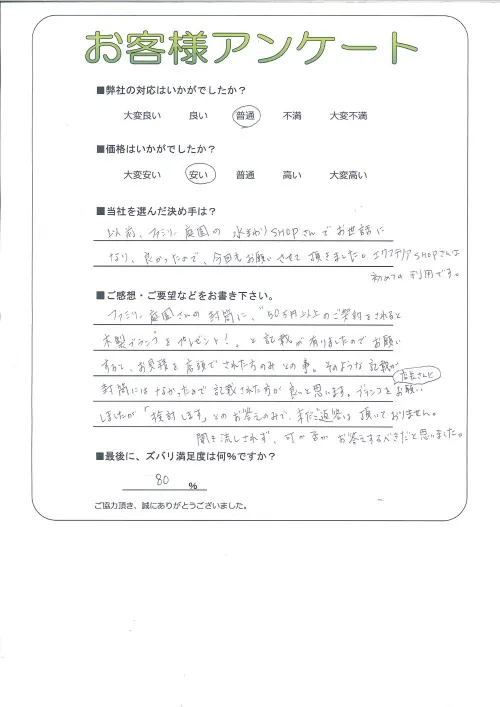 お客様アンケート
■弊社の対応はいかがでしたか？
大変良い 良い 普通 不満 大変不満
■価格はいかがでしたか？
大変安い 安い 普通 高い 大変高い
■当社を選んだ決め手は？
以前、ファミリー庭園の 水まわりSHOPさんでお世話に
なり、良かったので、今回もお願いさせて頂きました。エクステリアSHOPさんは
初めての利用です。
■ご感想・ご要望などをお書き下さい。
ファミリー庭園さんの封筒に、"50万円以上のご契約をされると
木製ブランコをプレゼント！"と記載が有りましたのでお願い
すると、お見積を店頭でされた方のみとの事。そのような記載が
封筒にはなかったので記載された方が良いと思います。ブランコをお願い
店長さんに
しましたが「検討します」とのお答えのみで、未だご返答は頂いておりません。
聞き流しされず、可か否かお答えするべきだと思いました。
■最後に、ズバリ満足度は何%ですか？
80 %
ご協力頂き、誠にありがとうございました。